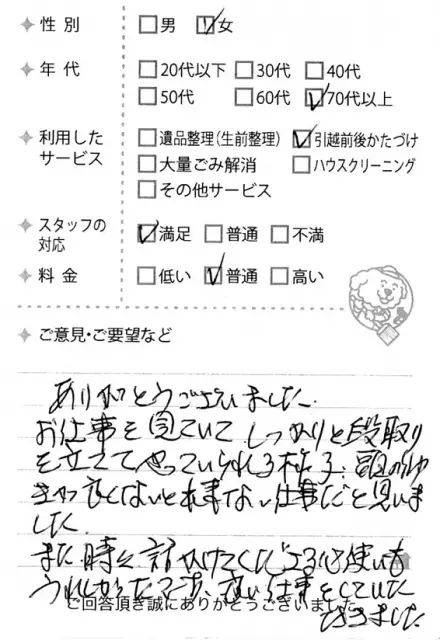 性別 □男 ☑女
年代 □20代以下 □30代 □40代
□50代 □60代 ☑70代以上
利用したサービス □遺品整理(生前整理) ☑引越前後かたづけ
□大量ごみ解消 □ハウスクリーニング
□その他サービス
スタッフの対応 ☑満足 □普通 □不満
料金 □低い ☑普通 □高い
ご意見・ご要望など
ありがとうございました。
お仕事を見ていて しっかりと段取り
を立ててやっていられる様子、頭の
良くないと出来ない仕事だと思いま
した。
また時々話かけてくださる心使いも
うれしかったです、良い仕事をしていた
だきました
ご回答頂き誠にありがとうございました